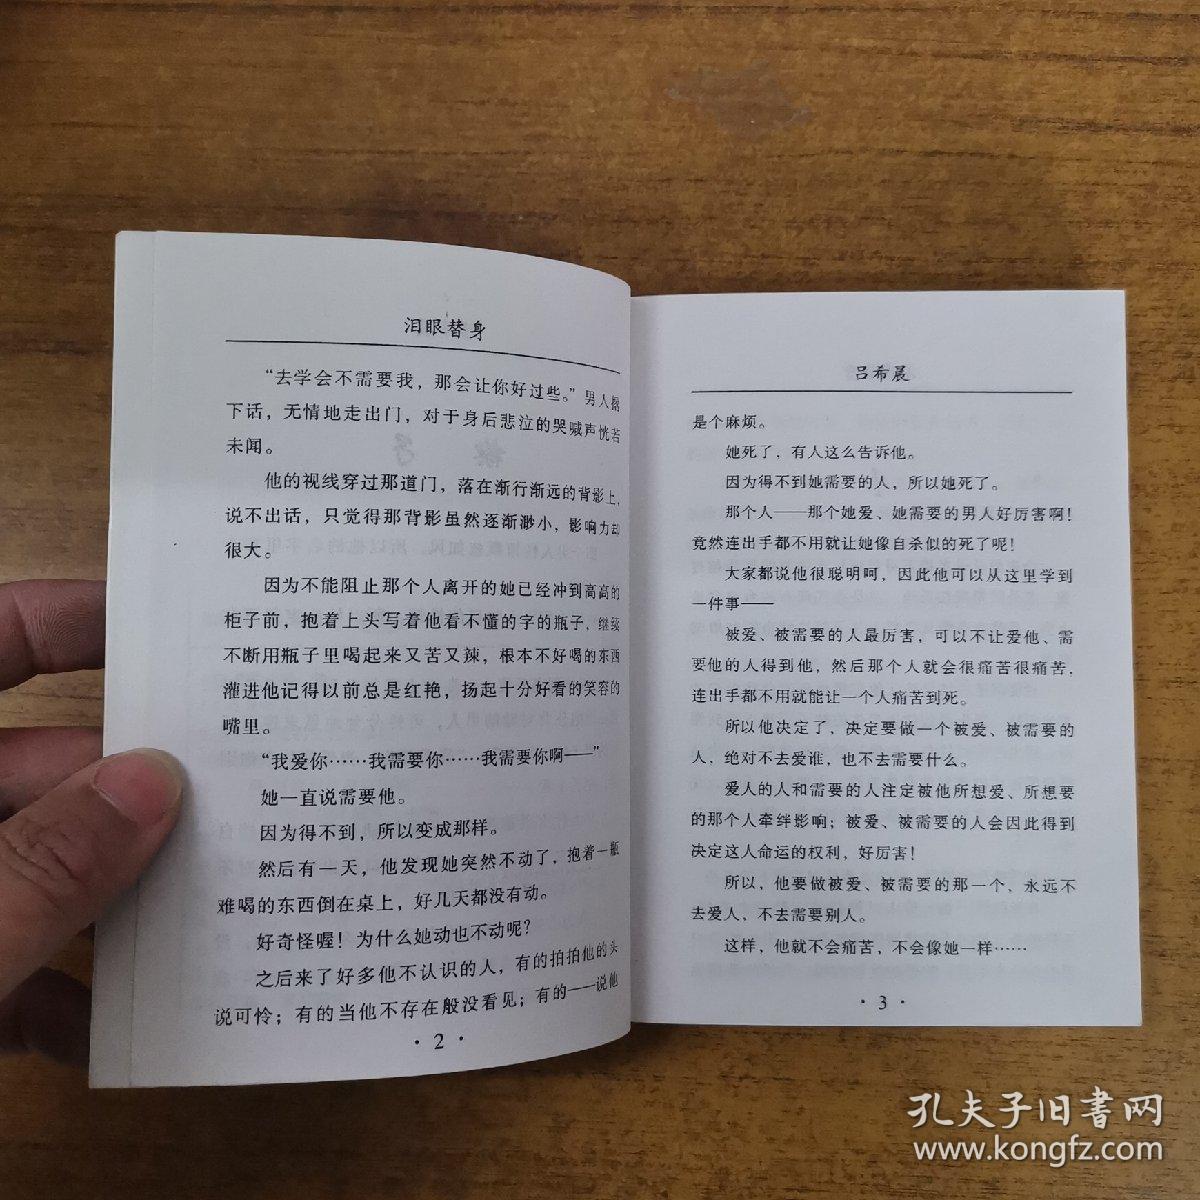 泪眼替身
“去学会不需要我，那会让你好过些。”男人撂
下话，无情地走出门，对于身后悲泣的哭喊声恍若
未闻。
他的视线穿过那道门，落在渐行渐远的背影上，
说不出话，只觉得那背影虽然逐渐渺小，影响力却
很大。
因为不能阻止那个人离开的她已经冲到高高的
柜子前，抱着上头写着他看不懂的字的瓶子，继续
不断用瓶子里喝起来又苦又辣，根本不好喝的东西
灌进他记得以前总是红艳，扬起十分好看的笑容的
嘴里。
“我爱你……我需要你……我需要你啊——”
她一直说需要他。
因为得不到，所以变成那样。
然后有一天，他发现她突然不动了，抱着一瓶
难喝的东西倒在桌上，好几天都没有动。
好奇怪喔！为什么她动也不动呢？
之后来了好多他不认识的人，有的拍拍他的头
说可怜；有的当他不存在般没看见；有的——说他
·2·
吕希晨
是个麻烦。
她死了，有人这么告诉他。
因为得不到她需要的人，所以她死了。
那个人——那个她爱、她需要的男人好厉害啊！
竟然连出手都不用就让她像自杀似的死了呢！
大家都说他很聪明呵，因此他可以从这里学到
一件事——
被爱、被需要的人最厉害，可以不让爱他、需
要他的人得到他，然后那个人就会很痛苦很痛苦，
连出手都不用就能让一个人痛苦到死。
所以他决定了，决定要做一个被爱、被需要的
人，绝对不去爱谁，也不去需要什么。
爱人的人和需要的人注定被他所想爱、所想要
的那个人牵绊影响；被爱、被需要的人会因此得到
决定这人命运的权利，好厉害！
所以，他要做被爱、被需要的那一个，永远不
去爱人，不去需要别人。
这样，他就不会痛苦，不会像她一样……
·3·
孔夫子旧书网
www.kongfz.com